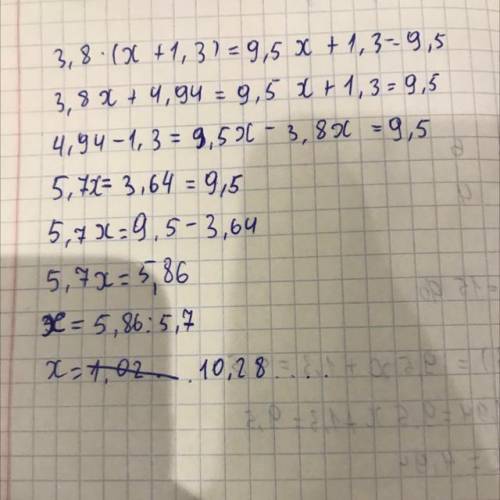 3,8 · (x + 1,3) = 9,5 x + 1,3 = 9,5
3,8x + 4,94 = 9,5 x + 1,3 = 9,5
4,94 - 1,3 = 9,5x - 3,8x = 9,5
5,7x = 3,64 = 9,5
5,7x = 9,5 - 3,64
5,7x = 5,86
x = 5,86 : 5,7
x = 1,02 . 10,28 . . .